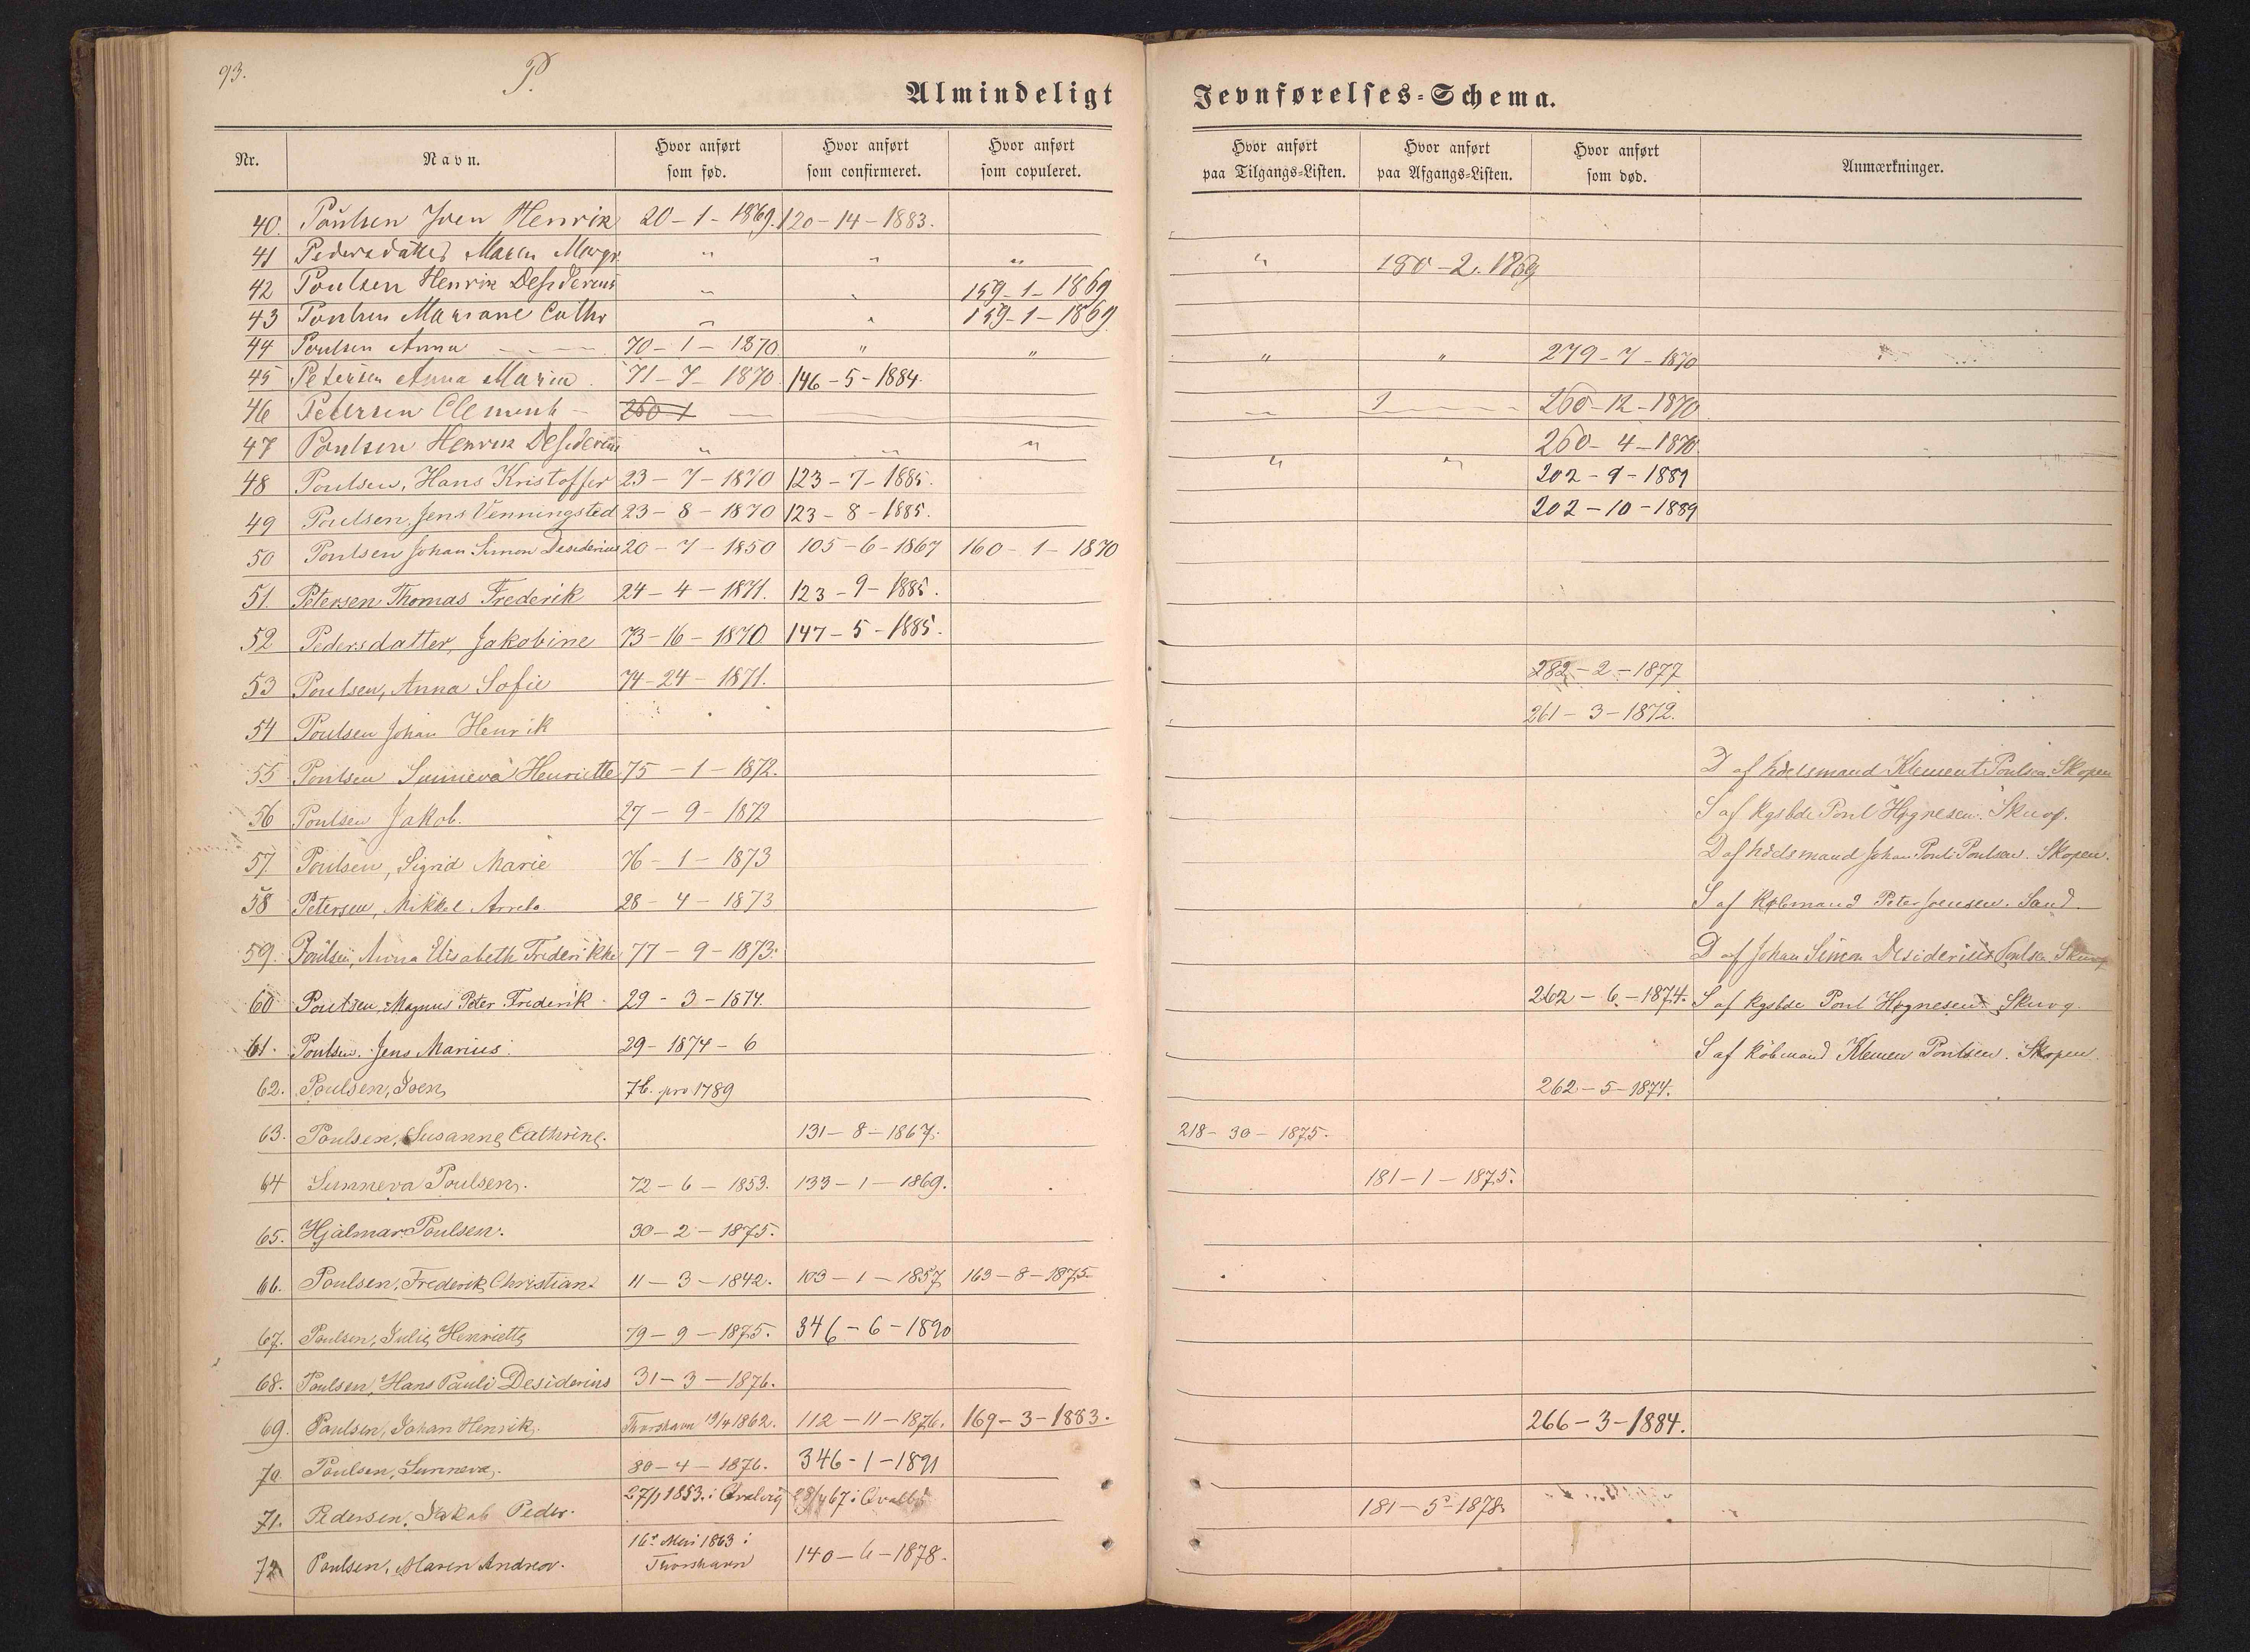 93.
P.
Almindeligt Jevnførelses-Schema.
Nr. Navn. Hvor anført som fød. Hvor anført som confirmeret. Hvor anført som copuleret. Hvor anført paa Tilgangs-Listen. Hvor anført paa Afgangs-Listen. Hvor anført som død. Anmærkninger.
40. Poulsen Joen Henrik 20-1-1869. 120-14-1883.
41 Pedersdatter Maren Margr. " " " " 180-2. 1869
42 Poulsen Henrik Desiderius " " 159-1-1869
43 Poulsen Mariane Cathr " " 159-1-1869
44 Poulsen Anna 70-1-1870 " " " " 279-7-1870
45 Petersen Anna Maria. 71-7-1870. 146-5-1884.
46 Petersen Clement - 260-1 - 260-12-1870
47 Poulsen Henrik Desiderius " " " " " 260-4-1870.
48 Poulsen, Hans Kristoffer 23-7-1870 123-7-1885. 202-9-1889
49 Poulsen, Jens Venningsted 23-8-1870 123-8-1885. 202-10-1889
50 Poulsen Johan Simon Desiderius 20-7-1850 105-6-1867 160-1-1870
51. Petersen Thomas Frederik 24-4-1871. 123-9-1885.
52 Pedersdatter, Jakobine 73-16-1870 147-5-1885.
53 Poulsen, Anna Sofie 74-24-1871. 282-2-1877
54 Poulsen Johan Henrik 261-3-1872.
55 Poulsen Sunneva Henriette 75-1-1872. D af Klement Poulsen. Skopen
56 Poulsen Jakob. 27-9-1872 S af Kgsbde Poul Høgnesen. Skuøy.
57. Poulsen, Sigrid Marie 76-1-1873 D af Johan Pouli Poulsen. Skopen.
58 Petersen, Mikkel 28-4-1873 S af Købmand Peter Joensen. Sand.
59. Poulsen, Anna Elisabeth Frederikke 77-9-1873. D af Johan Simon Desiderius Poulsen.
60 Poulsen, Magnus Peter Frederik 29-3-1874. 262-6.-1874. S af Kgsbde Poul Høgnesen
61. Poulsen. Jens Marius. 29-1874-6 S af Köbmand Klemen Poulsen. Skopen
62. Poulsen, Joen, 76. pro 1789 262-5-1874.
63. Poulsen, Susanne Cathrine. 131-8-1867. 218-30-1875.
64 Sunneva Poulsen. 72-6-1853. 133-1-1869. 181-1-1875.
65. Hjalmar Poulsen. 30-2-1875.
66. Poulsen, Frederik Christian. 11-3-1842. 103-1-1857 163-8-1875.
67. Poulsen, Julie Henriette 79-9-1875. 346-6-1890
68. Poulsen, Hans Pauli Desiderius 31-3-1876.
69. Poulsen, Johan Henrik. Thorshavn 19/4 1862. 112-11-1876. 169-3-1883. 266-3-1884.
70. Poulsen, Sunneva. 80-4-1876. 346-1-1891
71. Pedersen, Jakob Peder. 27/1 1853. i 181-5-1878.
72 Poulsen, Maren Andrea. 16de Mai 1863 i Thorshavn 140-6-1878.